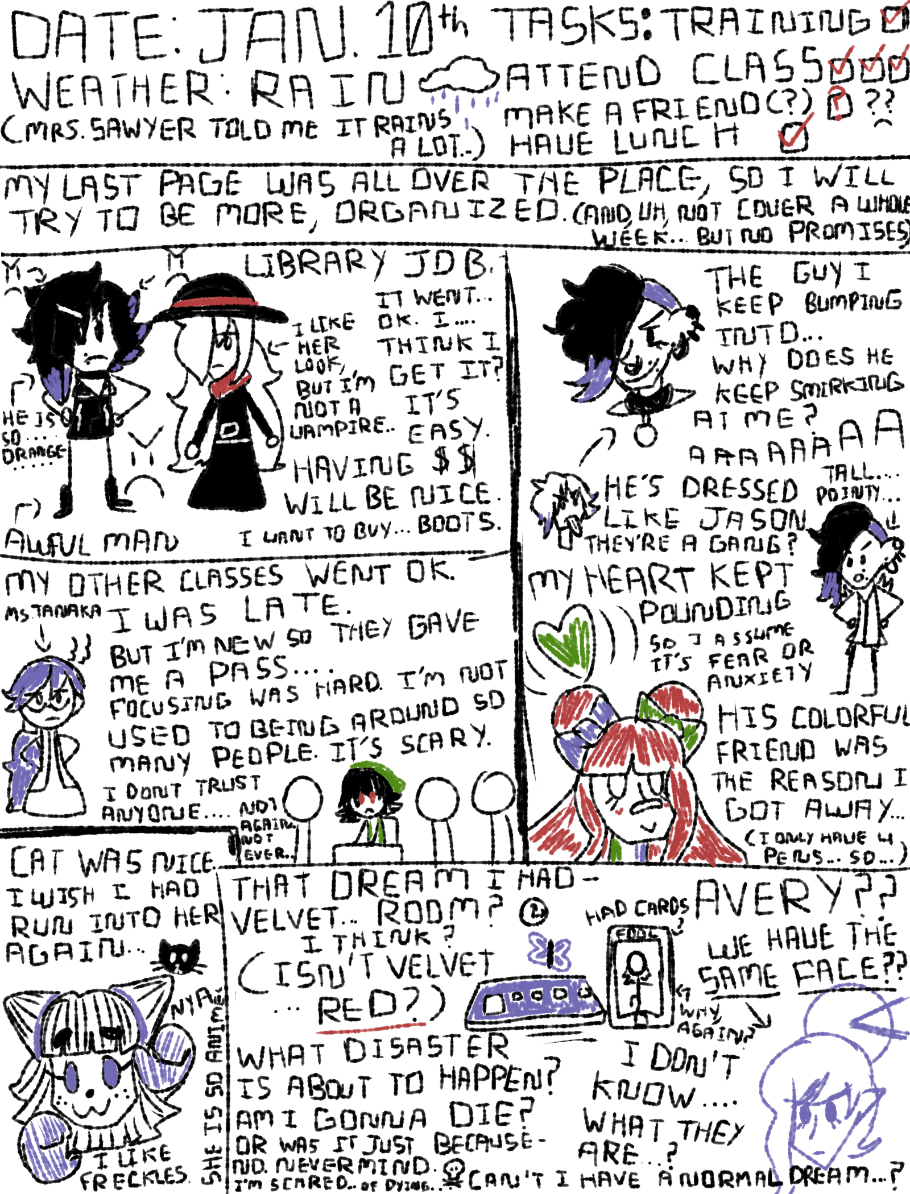 DATE: JAN. 10th
WEATHER: RAIN
(MRS. SAWYER TOLD ME IT RAINS
A LOT..)
TASKS: TRAINING
ATTEND CLASS
MAKE A FRIEND(?) ? ??
HAVE LUNCH
MY LAST PAGE WAS ALL OVER THE PLACE, SO I WILL
TRY TO BE MORE, ORGANIZED. (AND, UH, NOT COVER A WHOLE
WEEK... BUT NO PROMISES)
LIBRARY JOB.
IT WENT...
OK. I....
THINK I
GET IT?
IT'S
EASY.
HAVING $$
WILL BE NICE.
I WANT TO BUY... BOOTS.
I LIKE
HER
LOOK,
BUT I'M
NOT A
VAMPIRE..
HE IS
SO....
ORANGE
......
AWFUL MAN
THE GUY I
KEEP BUMPING
INTO...
WHY DOES HE
KEEP SMIRKING
AT ME?
AAAAAAAA
HE'S DRESSED
LIKE JASON
THEY'RE A GANG?
TALL....
POINTY...
MY HEART KEPT
POUNDING
SO I ASSUME
IT'S FEAR OR
ANXIETY
HIS COLORFUL
FRIEND WAS
THE REASON I
GOT AWAY...
(I ONLY HAVE 4
PENS... SO...)
MY OTHER CLASSES WENT OK.
MS.TANAKA
I WAS LATE.
BUT I'M NEW SO THEY GAVE
ME A PASS....
FOCUSING WAS HARD. I'M NOT
USED TO BEING AROUND SO
MANY PEOPLE. IT'S SCARY.
I DON'T TRUST
ANYONE....
NOT
AGAIN.
NOT
EVER..
CAT WAS NICE.
I WISH I HAD
RUN INTO HER
AGAIN...
NYA~
SHE IS SO ANIME
I LIKE
FRECKLES.
THAT DREAM I HAD-
VELVET... ROOM?
I THINK?
(ISN'T VELVET
... RED?)
HAD CARDS?
FOOL
WHY,
AGAIN?
AVERY??
WE HAVE THE
SAME FACE??
WHAT DISASTER
IS ABOUT TO HAPPEN?
AM I GONNA DIE?
OR WAS IT JUST BECAUSE-
NO. NEVERMIND.
I'M SCARED... OF DYING...
I DON'T
KNOW....
WHAT THEY
ARE...?
CAN'T I HAVE A NORMAL DREAM...?